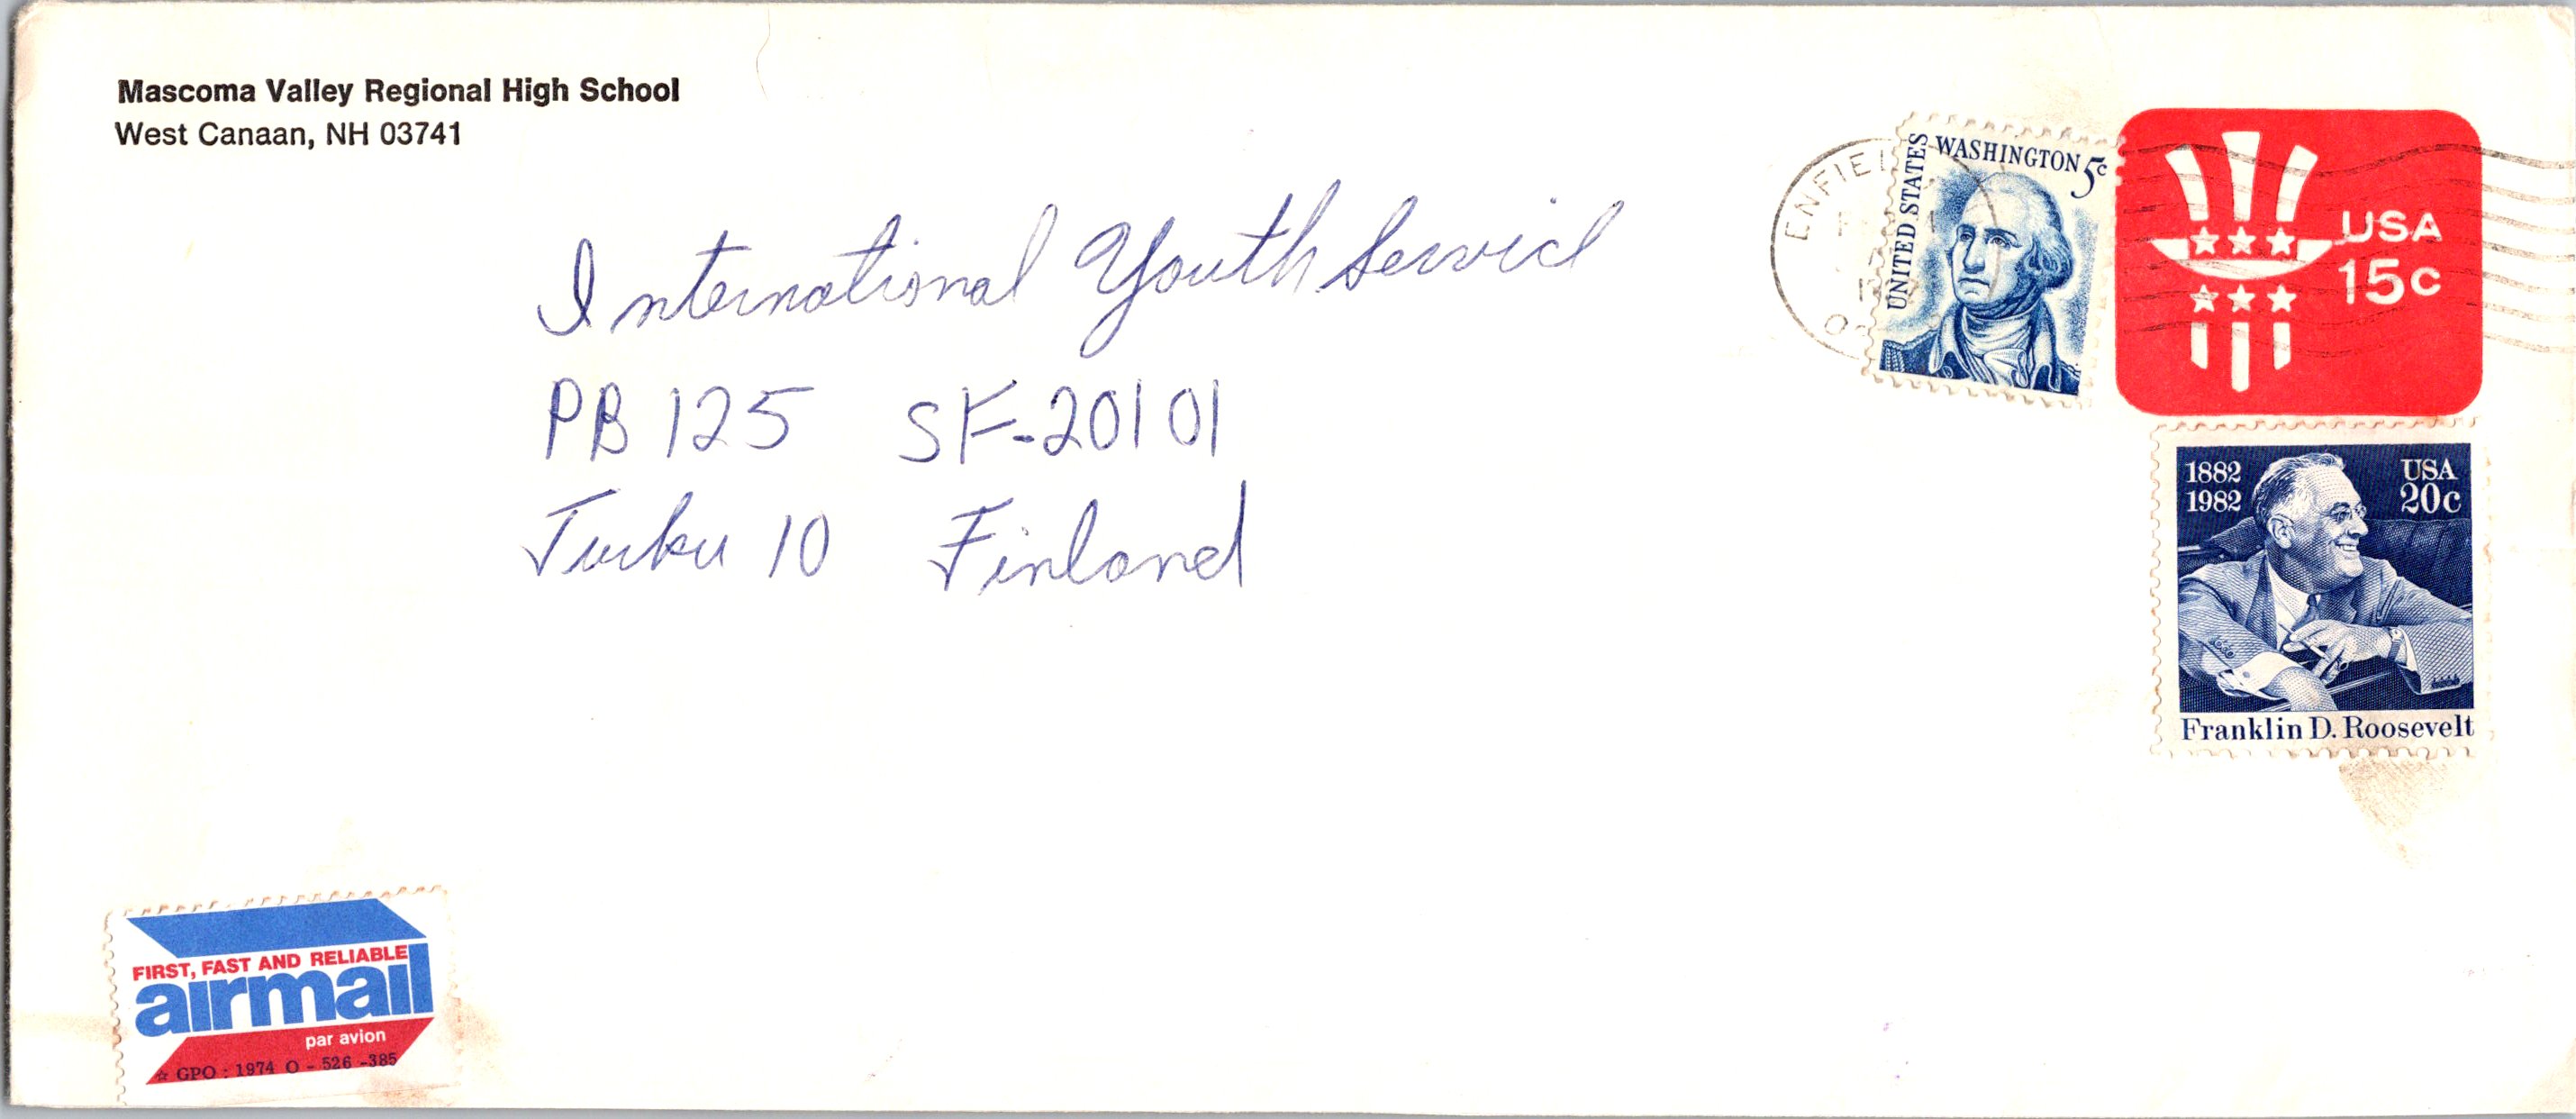 Mascoma Valley Regional High School
West Canaan, NH 03741
International Youth Service
PB 125 SF-20101
Turku 10 Finland
ENFIEL
UNITED STATES
WASHINGTON 5c
USA
15c
1882
1982
USA
20c
Franklin D. Roosevelt
FIRST, FAST AND RELIABLE
airmail
par avion
☆ GPO : 1974 O - 526 -385